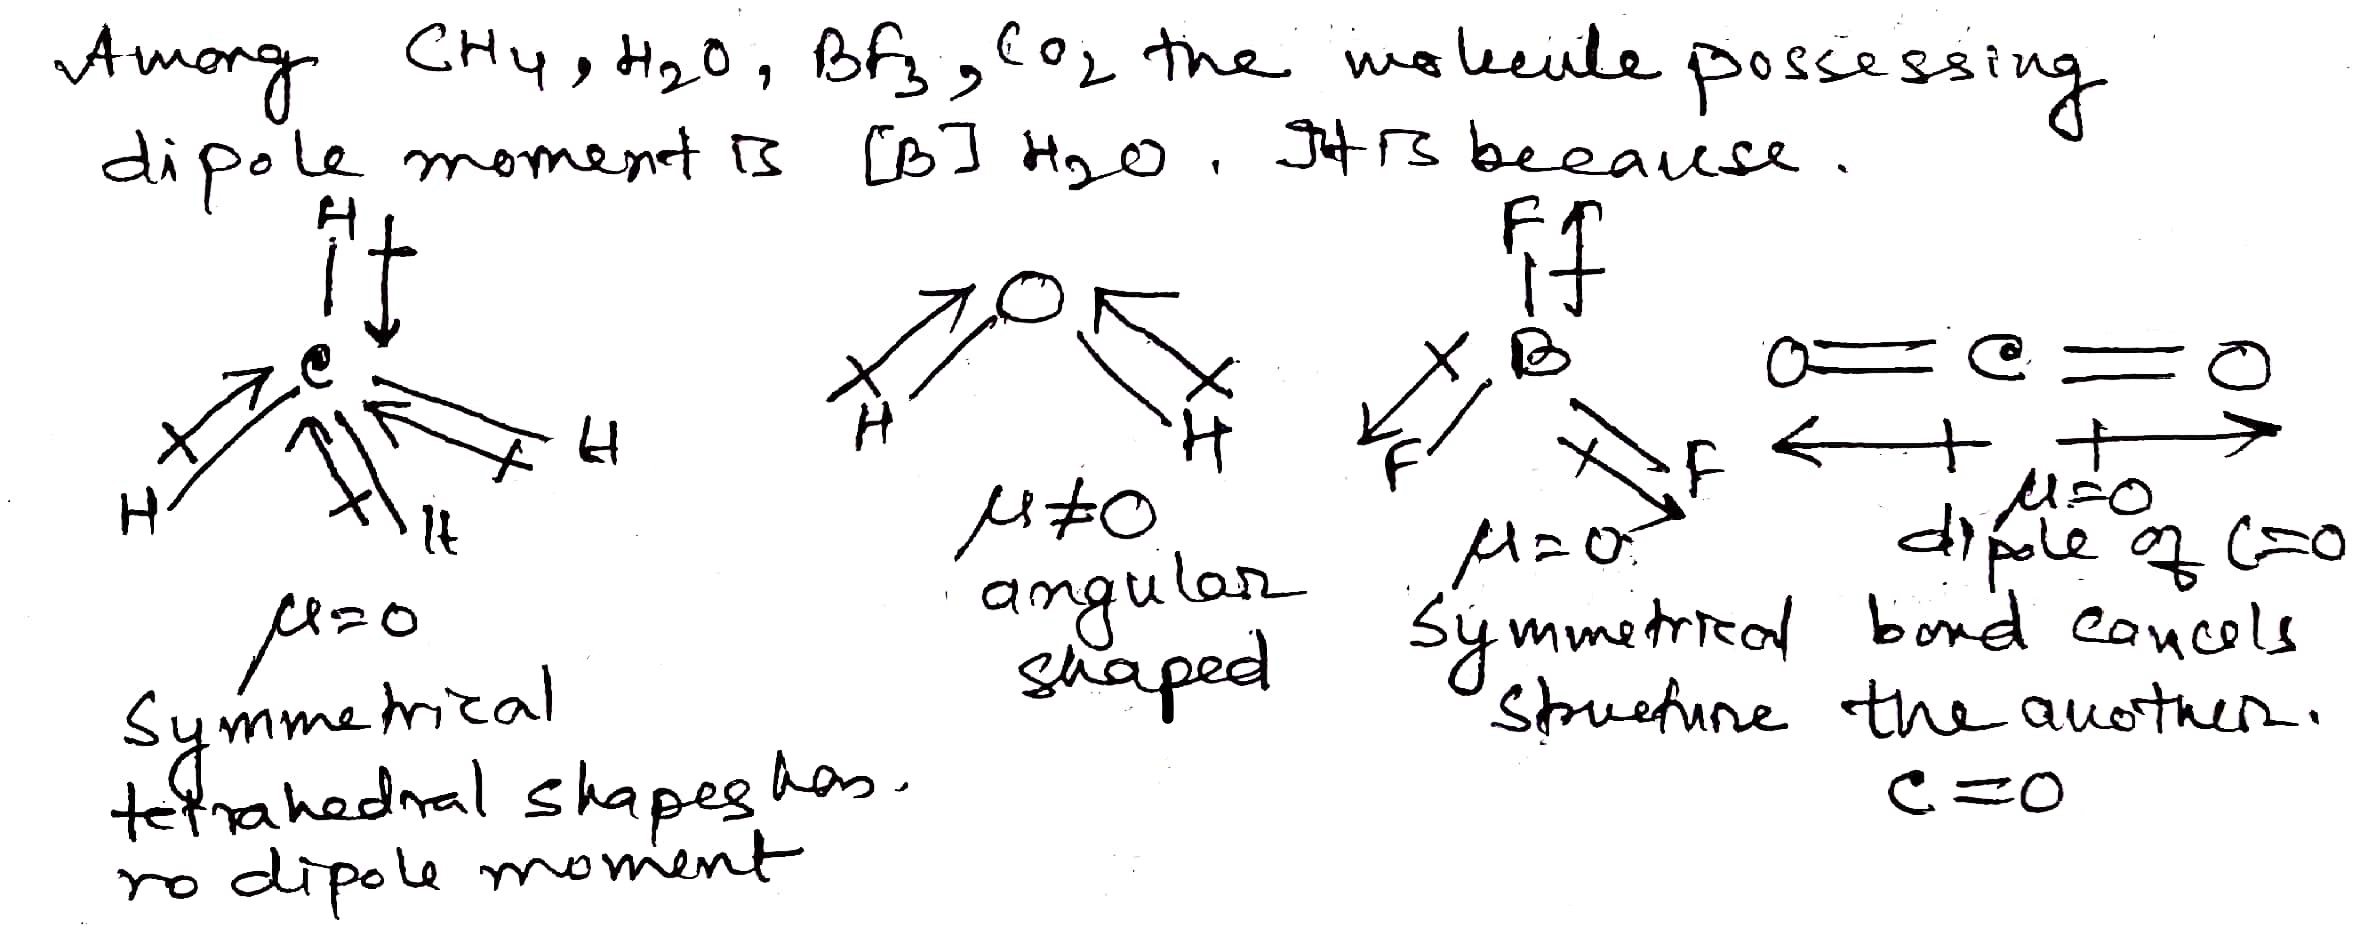 Among CH4, H2O, BF3, CO2 the molecule possessing
dipole moment is [B] H2O. It is because.
H
C
H H H
μ=0
Symmetrical
tetrahedral shapes has.
no dipole moment
O
H H
μ≠0
angular
shaped
F
B
F F
μ=0
Symmetrical
structure
O=C=O
μ=0
dipole of C=O
bond cancels
the another.
C=O